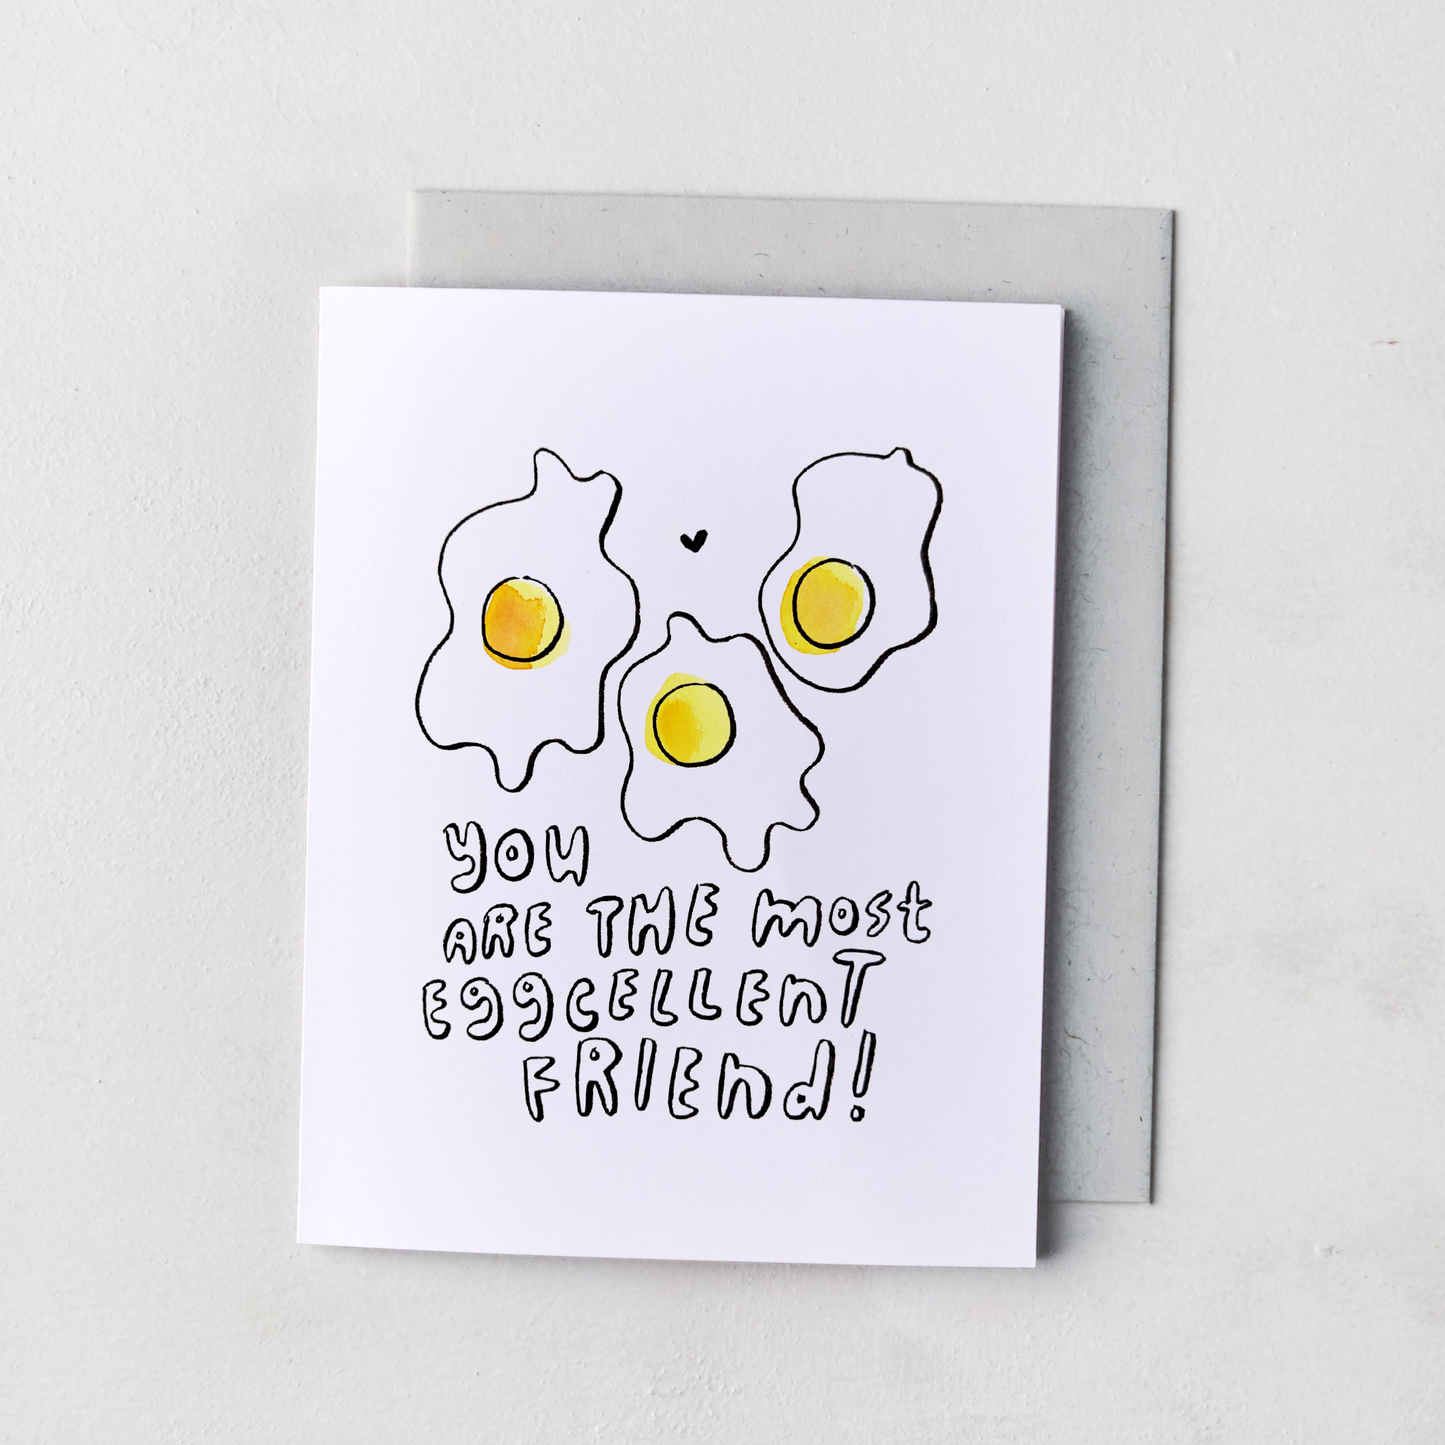 YOU
ARE THE most
EggCELLEnT
FRIEnd!